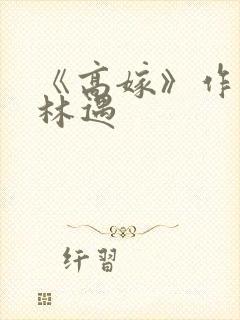 《高嫁》作
林遇
纤習